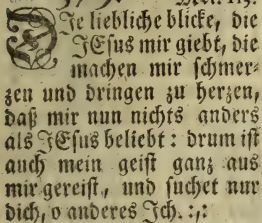 DIe liebliche blicke, die
JEsus mir giebt, die
machen mir schmer-
zen und dringen zu herzen,
daß mir nun nichts anders
als JEsus beliebt: drum ist
auch mein geist ganz aus
mir gereist, und suchet nur
dich, o anderes Ich. :,: